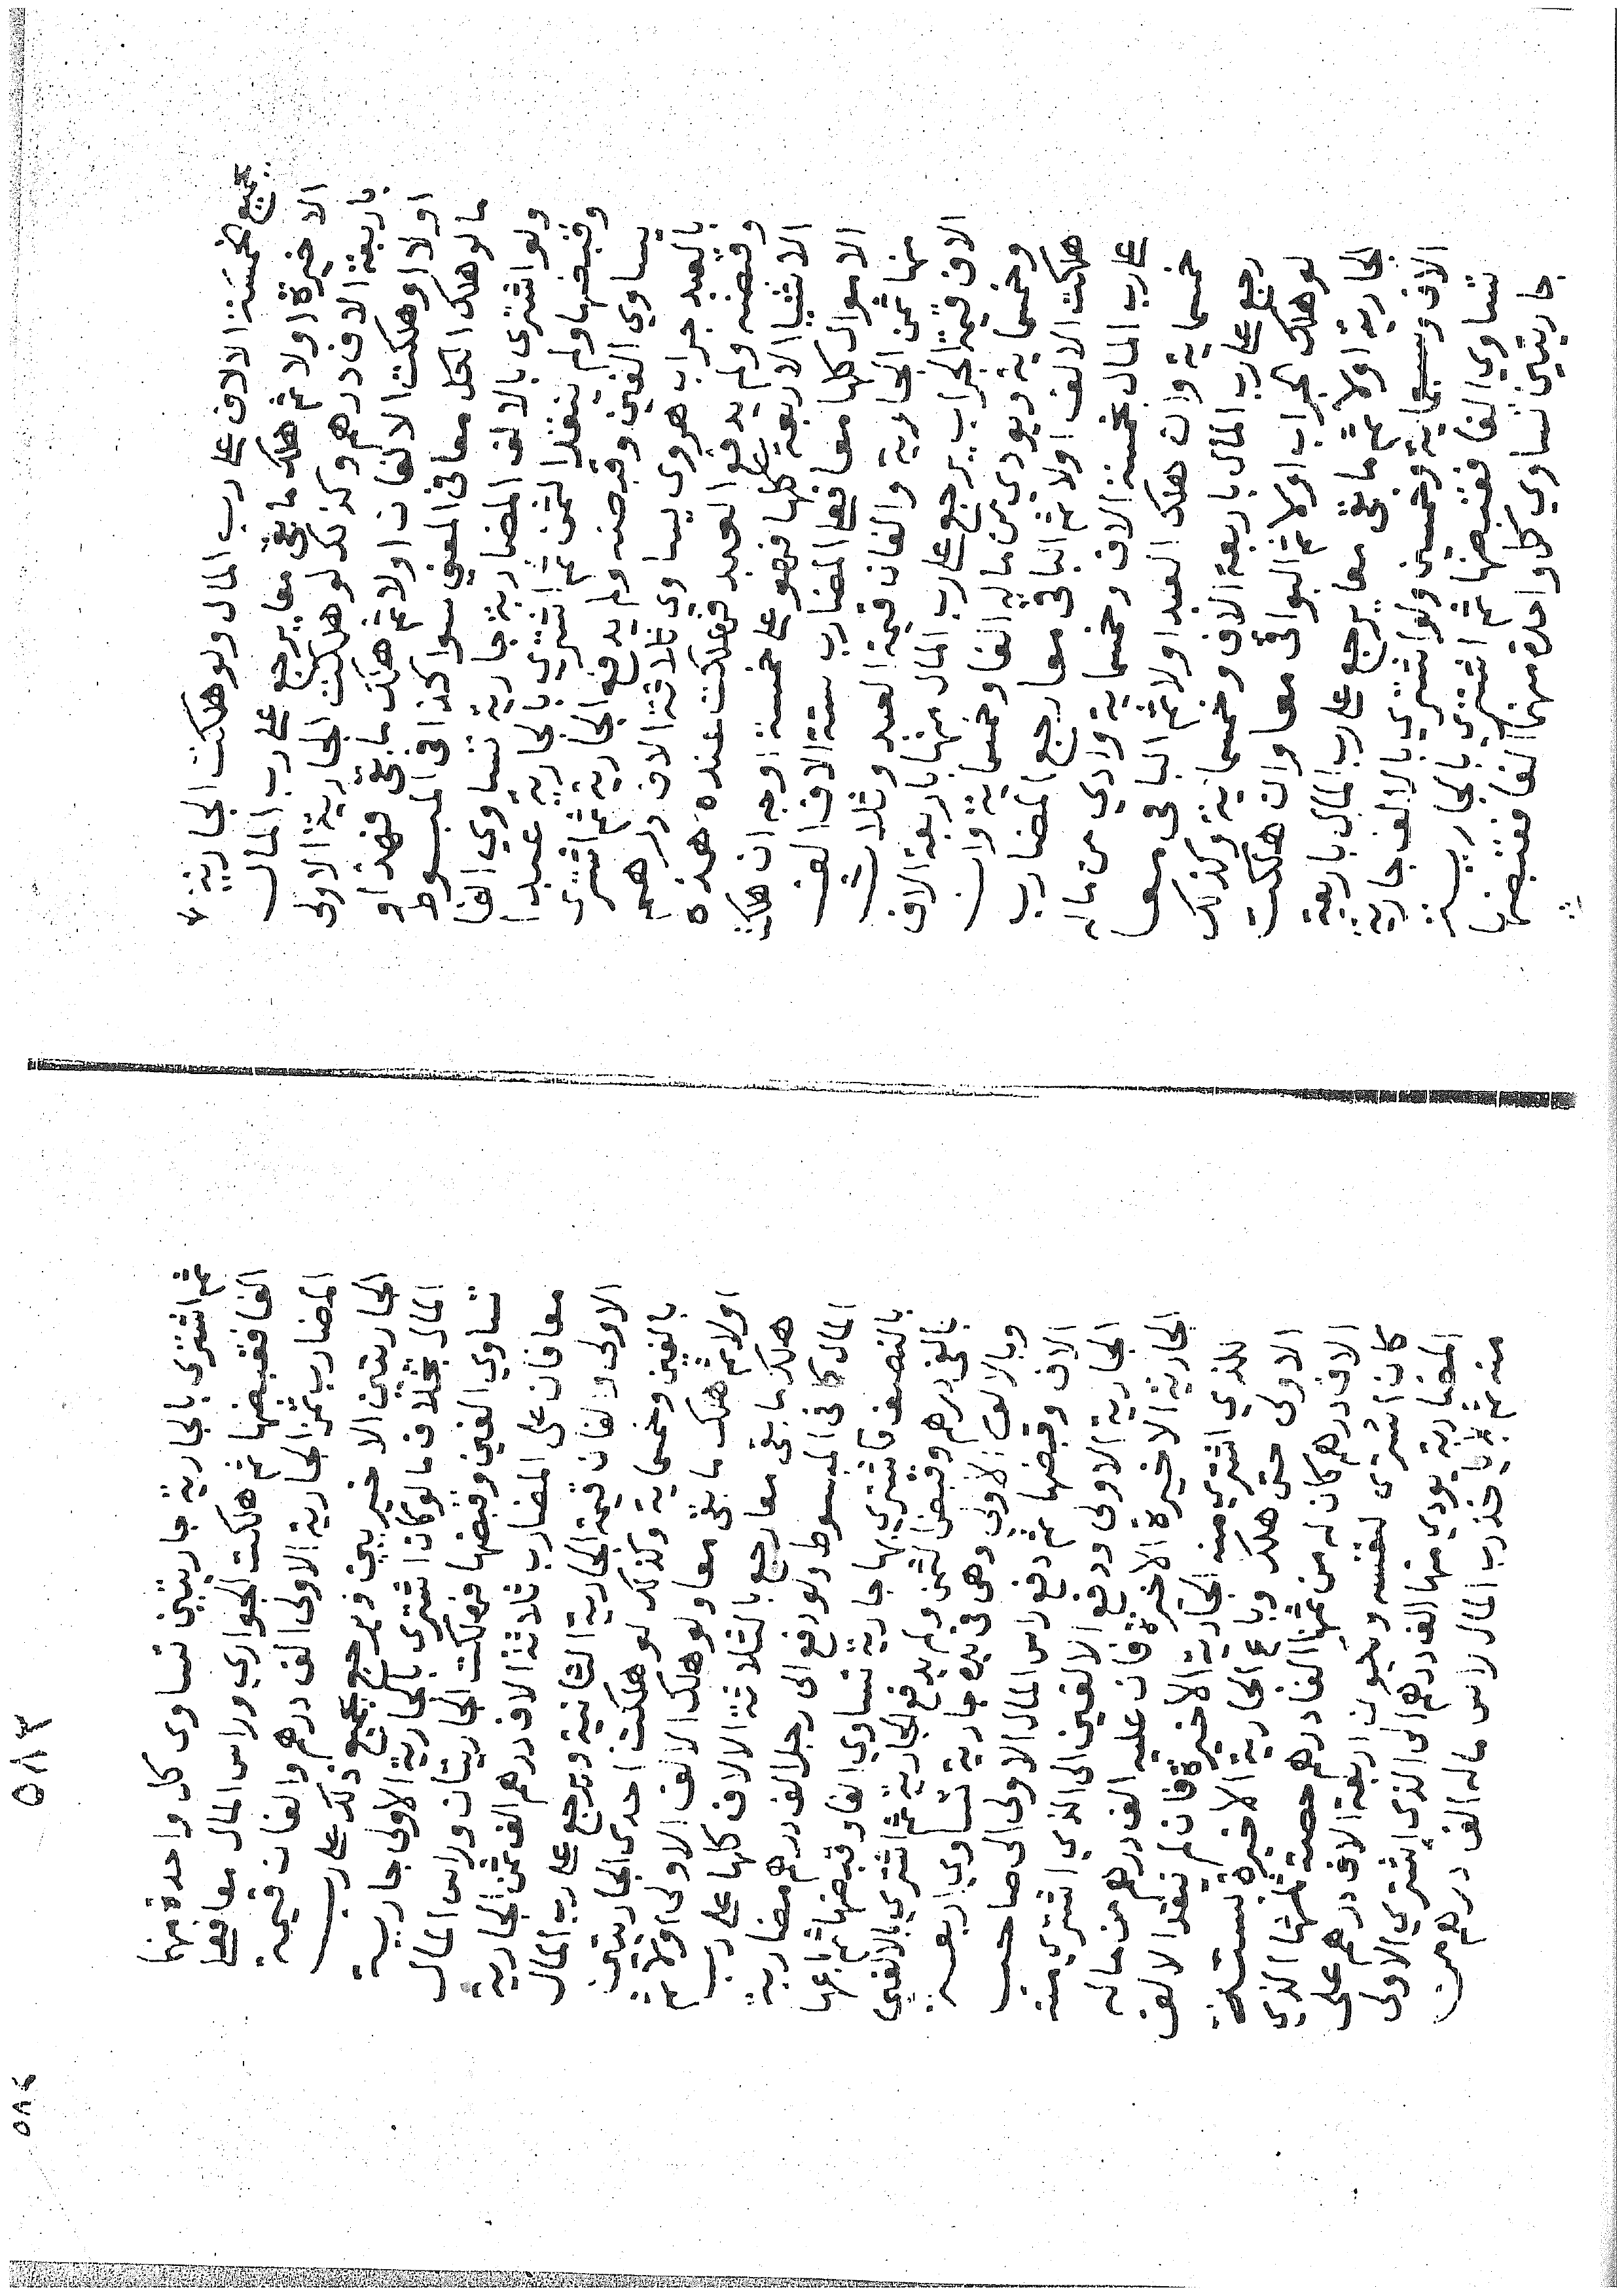 بجميع خمسة الالاف على رب المال ولو هلكت الجارية
الاخيرة اولا ثم هلك ما بقى معا يرجع على رب المال
باربعة الاف درهم وكذلك لو هلكت الجارية الاولى
اولا او هلكت الالفان اولا ثم هلك ما بقى فهذا و
ما لو هلك الكل معا في المعنى سوا كذا في المبسوط
ولو اشترى بالالف المضاربة جارية تساوي الفا
وقبضها ولم ينقد الثمن ثم اشترى بالجارية عبدا
يساوي الفين وقبضه ولم يدفع الجارية ثم اشترى
بالعبد جراب هروي يساوي ثلاثة الاف درهم
وقبضه ولم يدفع العبد فهلكت عنده هذه
الاشيا الاربعة كلها فهو على خمسة اوجه ان هلكت
الاموال كلها معا فعلى المضارب ستة الاف الف
منها ثمن الجارية والفان قيمة العبد وثلاث
الاف قيمة الجراب يرجع على رب المال منها باربعة الاف
وخمسماية ويودي من ماله الفا وخمسماية وان
هلكت الالف اولا ثم الباقي معا رجع المضارب
على رب المال بخمسة الاف وخمسماية وادي من ماله
خمسماية وان هلك العبد اولا ثم الباقي معا
رجع على رب المال باربعة الاف وخمسماية وكذلك
لو هلك الجراب اولا ثم البواقي معا وان هلكت
الجارية اولا ثم ما بقى معا يرجع على رب المال باربعة
الاف وسبعماية وخمسين ولو اشترى بالالف جارية
تساوي الفا فقبضها ثم اشترى بالجارية
جاريتين تساوي كل واحدة منهما الفا فقبضها
ثم اشترى بالجارية جاريتين تساوى كل واحدة منها
الفا فقبضها ثم هلكت الجواري وراس المال معا فعلى
المضارب ثمن الجارية الاولى الف درهم والفان قيمة
الجاريتين الاخريين ويرجع بجميع ذلك على رب
المال بخلاف ما لو كان اشترى بالجارية الاولى جارية
تساوي الفين وقبضها فهلكت الجاريتان وراس المال
معا فان على المضارب ثلاثة الاف درهم الف ثمن الجارية
الاولى والفان قيمة الجارية الثانية ويرجع على رب المال
بالفين وخمسماية وكذلك لو هلكت احدى الجاريتين
اولا ثم هلك ما بقى معا ولو هلك الالف الاولى اولا ثم
هلك ما بقى معا رجع بالثلاثة الالاف كلها على رب
المال كا في المبسوط ولو دفع الى رجل الف درهم مضاربة
بالنصف فاشترى بها جارية تساوي الفا وقبضها ثم باعها
بالفى درهم وقبض الثمن ولم يدفع الجارية ثم اشترى بالالفين
وبالالف الاولى وهى فى يده جارية تساوي اربعة
الاف وقبضها ثم دفع راس المال الاولى الى صاحب
الجارية الاولى ودفع الالفين الى الذي اشترى منه
الجارية الاخيرة الاخيرة فان عليه الف درهم من ماله
للذي اشترى منه الجارية الاخيرة فان لم ينقد الالف
الاولى حتى هلك وباع الجارية الاخيرة بستة
الاف درهم كان له من ثمنها الفا درهم حصة ثلثها الذي
كان اشترى لنفسه ويكون اربعة الاف درهم على
المضاربة يودي منها الف درهم الى الذي اشترى الاولى
منه ثم ياخذ رب المال راس ماله الف درهم من
٥٨٣
٥٨٤